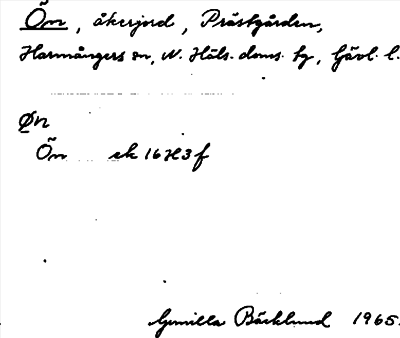 Ön, åkerjord, Prästgården,
Harmångers sn, N. Häls. doms. hg, Gävl. l.
Øn
Ön ek 16H3f
Gunilla Bäcklund 1965.